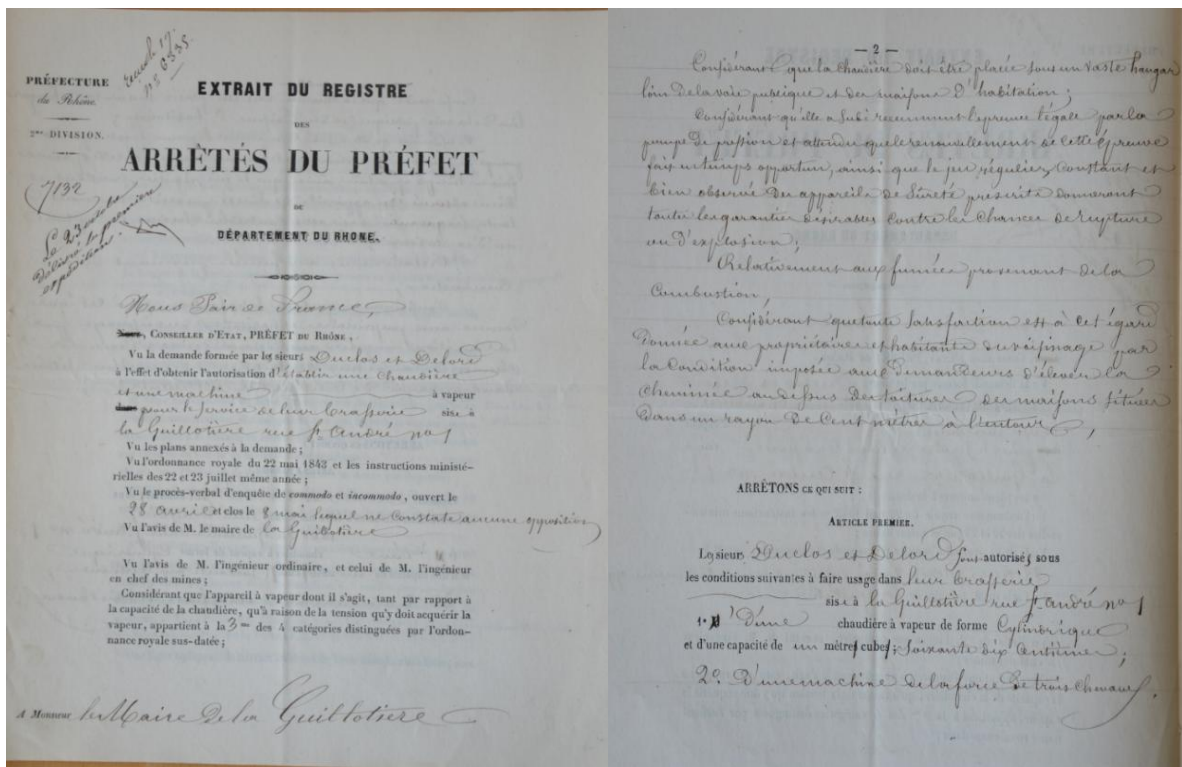 PRÉFECTURE
du Rhône.
2me DIVISION.
7132
Le 23 octobre
délivré la première
expédition
EXTRAIT DU REGISTRE
DES
ARRÊTÉS DU PRÉFET
DU
DÉPARTEMENT DU RHONE.
Nous Pair de France,
Nous, CONSEILLER D'ÉTAT, PRÉFET DU RHÔNE,
Vu la demande formée par les sieurs Duclos et Delord
à l'effet d'obtenir l'autorisation d'établir une chaudière
et une machine à vapeur
pour le service de leur brasserie sise à
la Guillotière rue St André no 1
Vu les plans annexés à la demande ;
Vu l'ordonnance royale du 22 mai 1843 et les instructions ministé-
rielles des 22 et 23 juillet même année ;
Vu le procès-verbal d'enquête de commodo et incommodo, ouvert le
28 avril et clos le 8 mai lequel ne constate aucune opposition
Vu l'avis de M. le maire de la Guillotière
Vu l'avis de M. l'ingénieur ordinaire, et celui de M. l'ingénieur
en chef des mines ;
Considérant que l'appareil à vapeur dont il s'agit, tant par rapport à
la capacité de la chaudière, qu'à raison de la tension qu'y doit acquérir la
vapeur, appartient à la 3me des 4 catégories distinguées par l'ordon-
nance royale sus-datée ;
A Monsieur le Maire de la Guillotière
— 2 —
Considérant que la chaudière doit être placée sous un vaste hangar
loin de la voie publique et des maisons d'habitation ;
Considérant qu'elle a subi récemment l'épreuve légale par la
pompe de pression et attendu que le renouvellement de cette épreuve
fait en temps opportun, ainsi que le jeu régulier, constant et
bien observé des appareils de sûreté prescrits donneront
toutes les garanties désirables contre les chances de rupture
ou d'explosion ;
Relativement aux fumées provenant de la
combustion,
Considérant que toute satisfaction est à cet égard
donnée aux propriétaires et habitants du voisinage par
la condition imposée aux demandeurs d'élever la
cheminée au dessus des toitures des maisons situées
dans un rayon de cent mètres à l'entour,
ARRÊTONS CE QUI SUIT :
ARTICLE PREMIER.
Les sieurs Duclos et Delord sont autorisés sous
les conditions suivantes à faire usage dans leur brasserie
sise à la Guillotière rue St André no 1
1o D'une chaudière à vapeur de forme Cylindrique
et d'une capacité de un mètre cube ; soixante dix centièmes ;
2o D'une machine de la force de trois chevaux.